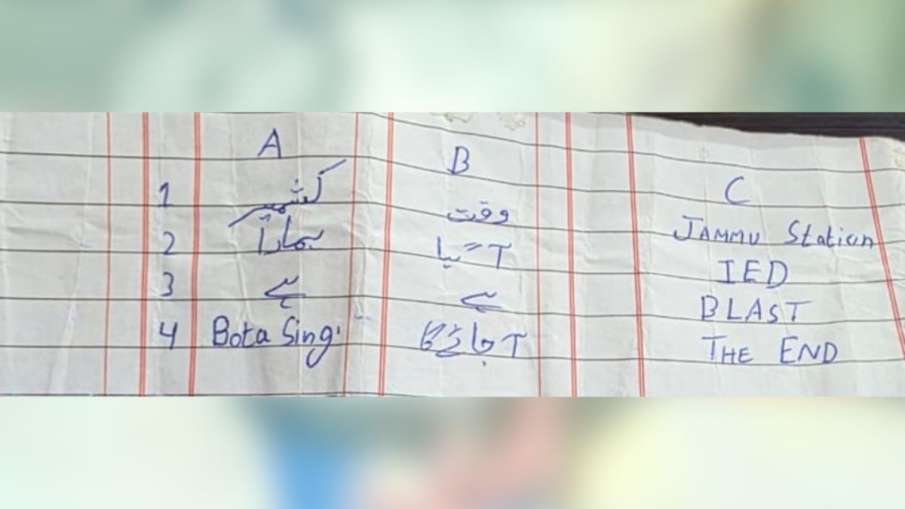 A B C
1 کشمیر وقت Jammu Station
2 ہمارا آ گیا IED
3 ہے ہے BLAST
4 Bota Sing آ جائے گا THE END